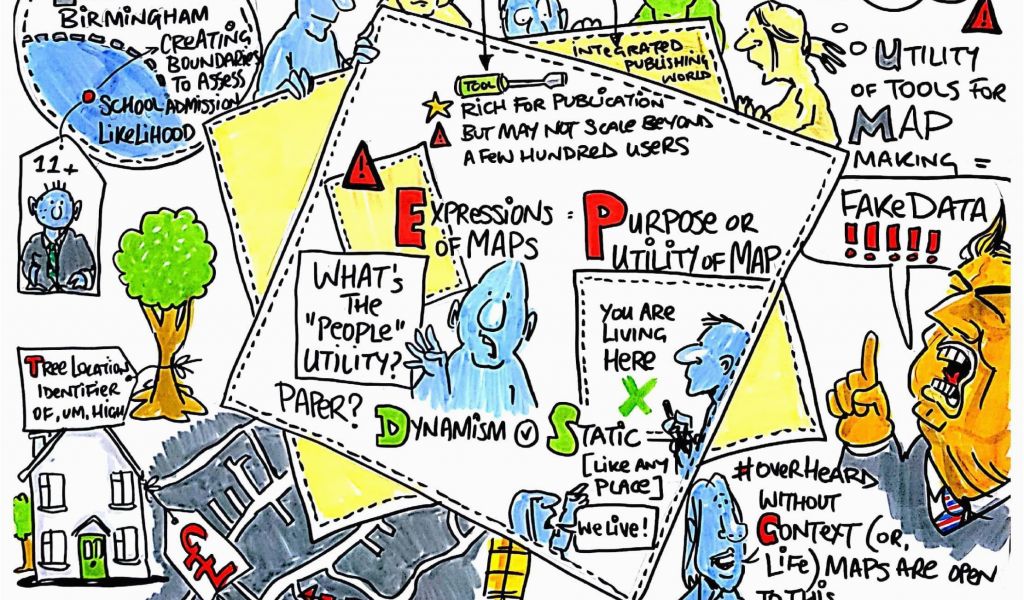 BIRMINGHAM
CREATING
BOUNDARIES
TO ASSESS
SCHOOL ADMISSION
LIKELIHOOD
11+
TREE LOCATION
IDENTIFIER
OF, UM, HIGH
£
INTEGRATED
PUBLISHING
WORLD
TOOL
RICH FOR PUBLICATION
BUT MAY NOT SCALE BEYOND
A FEW HUNDRED USERS
EXPRESSIONS =
OF MAPS
PURPOSE OR
UTILITY OF MAP
WHAT'S
THE
"PEOPLE"
UTILITY?
PAPER?
YOU ARE
LIVING
HERE
DYNAMISM
STATIC =
[LIKE ANY
PLACE]
WE LIVE!
UTILITY
OF TOOLS FOR
MAP
MAKING =
FAKE DATA
!!!!!
#OVERHEARD
WITHOUT
CONTEXT (OR,
LIFE) MAPS ARE OPEN
TO THIS